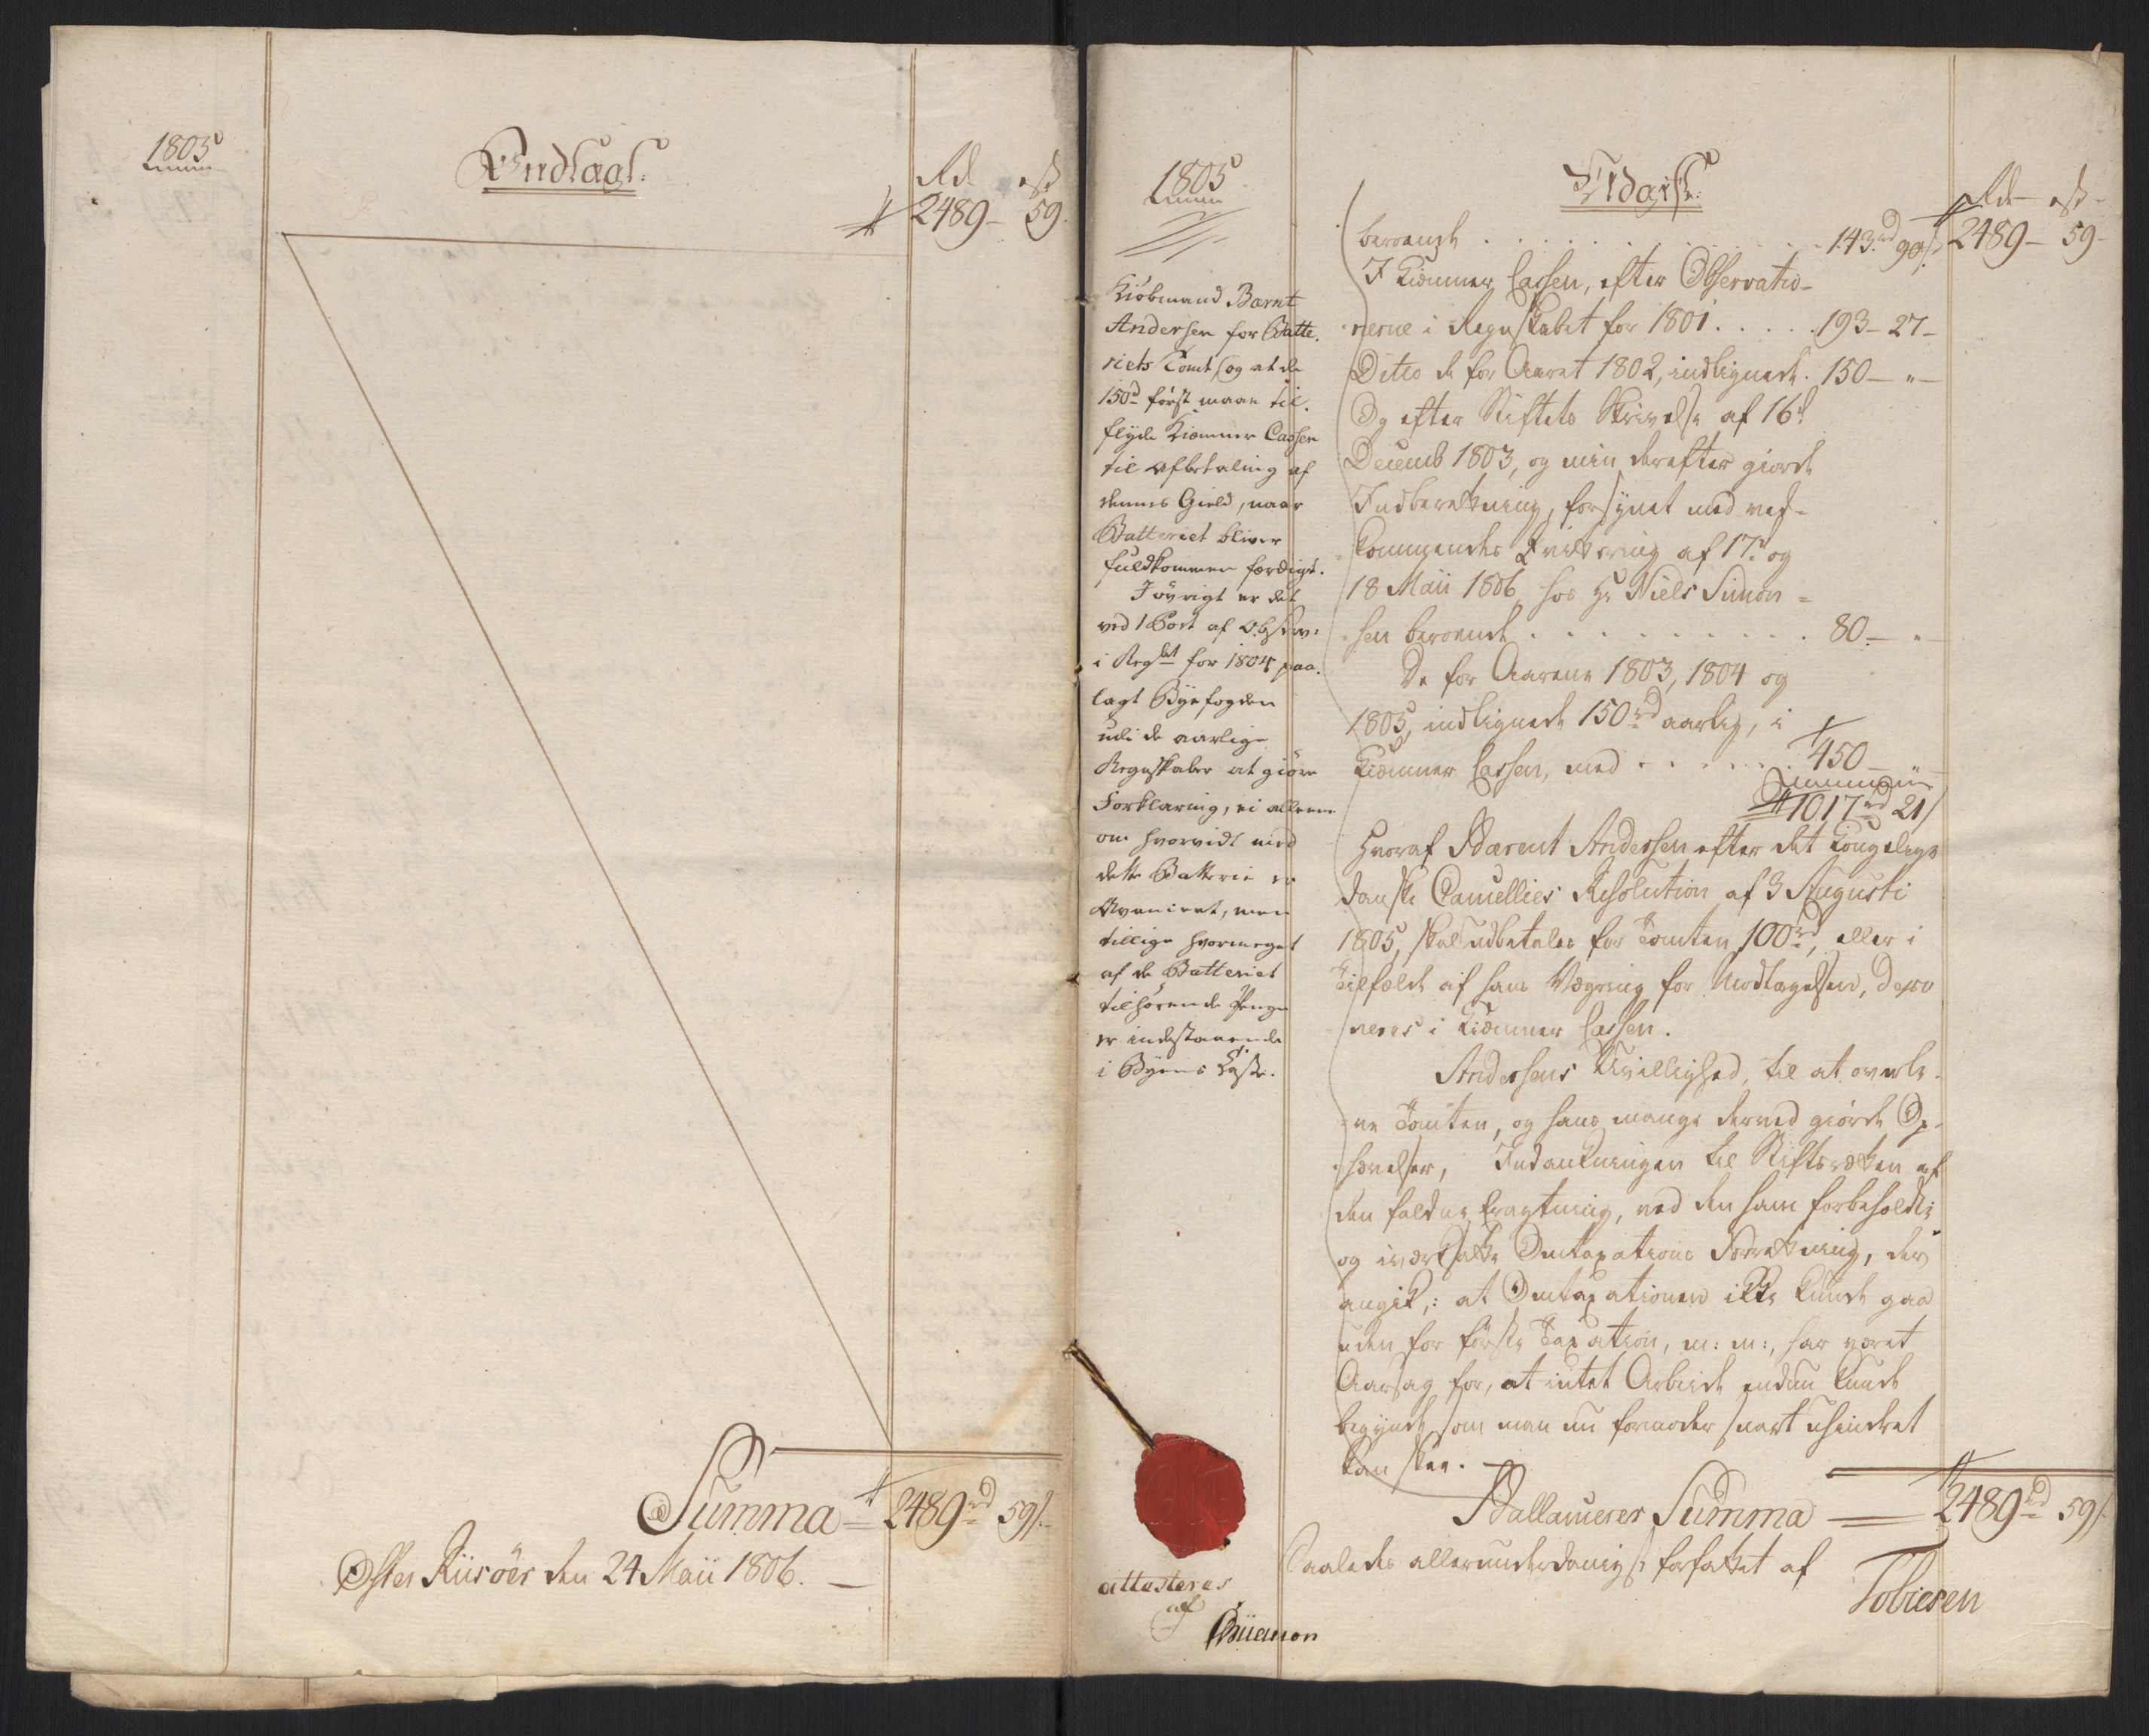 1805
Indtægt.
Rd ß
2489 - 59.
Summa = 2489rd 59ß.
Øster Riisöer den 24 Maii 1806.
1805
Kiöbmand Barnt
Andersen for Batte-
riets Tomt, og at de
150rd först maae til-
flyde Kiæmner Cassen
til Afbetaling af
dennes Gield, naar
Batteriet bliver
fuldkommen færdigt.
I övrigt er det
ved 1 Post af Observ:
i Regbet for 1804 paa-
lagt Byefogden
udi de aarlige
Regnskaber at giöre
Forklaring, ei alleene
om hvorvidt med
dette Batterie er
Avanceret, men
tillige hvormeget
af de Batteriet
tilhörende Penge
er indestaaende
i Byens Casse.
attesteres
af
Udgift.
Rd ß
beroende . . . 143rd 90ß. 2489 - 59 -
I Kiæmner Cassen, efter Observatio-
nerne i Regnskabet for 1801 . . . . . 193 - 27 -
Ditto de for Aaret 1802, indlignede . 150 - " -
Og efter Stiftets Skrivelse af 16d
Decemb 1803, og min derefter giorde
Indberetning, forsynet med ved-
kommendes Qvittering af 17de og
18 Maii 1806, hos Hr Niels Simon-
sen beroende . . . . . . . . . 80 - " -
De for Aarene 1803, 1804 og
1805, indlignede 150rd aarlig, i
Kiæmner Cassen, med . . . . . . 450 - " -
1017rd 21ß
Hvoraf Barent Andersen efter det Kongelige
danske Cancellies Resolution af 3 Augusti
1805, skal udbetales for Tomten 100rd, eller i
Tilfælde af hans Vægring for Modtagelsen, depo
neres i Kiæmner Cassen.
Andersens Uvillighed, til at overle-
ve Tomten, og hans mange derved giorde Op-
hævelser, Indankningen til Stiftsretten af
den faldne Fragtning, ved den ham forbeholdte
og iværksatte Omtaxations Forretning, der
angik,: at Omtaxationen ikke kunde gaae
uden for förste Taxation, m: m:, har været
Aarsag for, at intet Arbeide endnu kunde
begynde, som man nu formoder snart uhindret
kan skee.
Ballancerer Summa — 2489rd 59ß
Saaledes allerunderdanigst forfattet af
Tobiesen